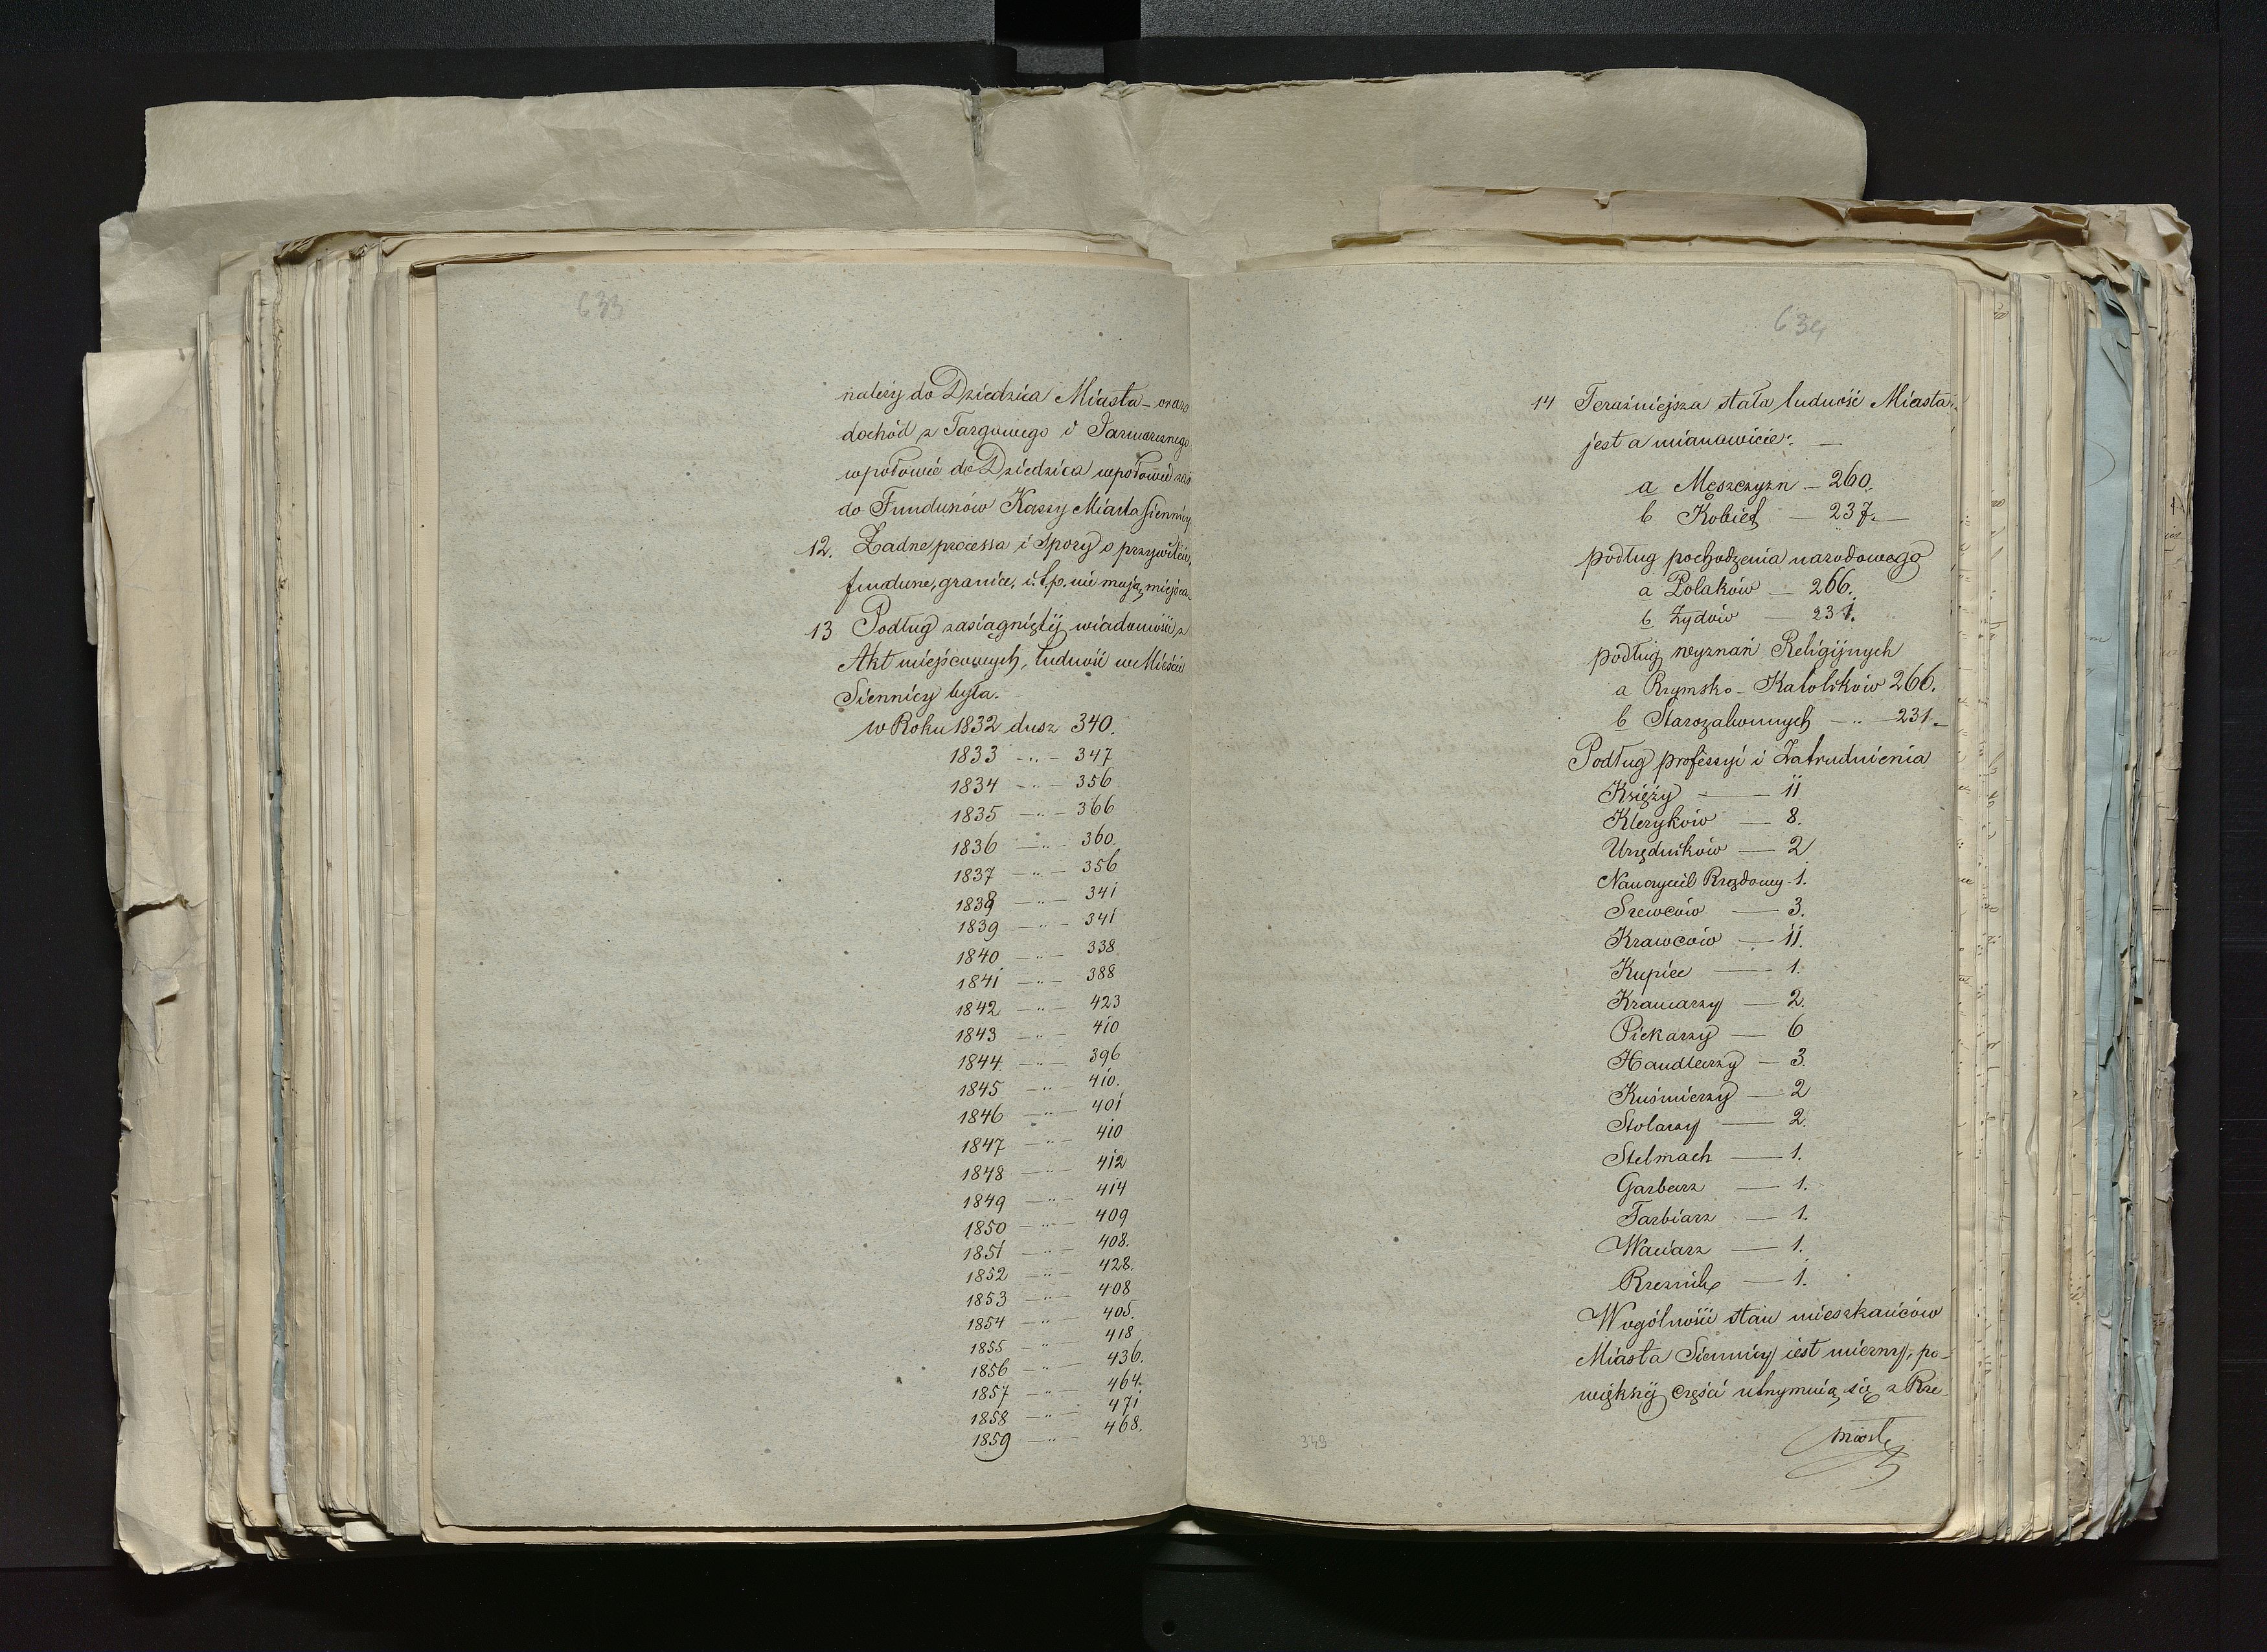 633
należy do Dziedzica Miasta – oraz
dochód z Targowego i Jarmarcznego
wpołowie do Dziedzica wpołowie zaś
do Fundusów Kassy Miasta Siennicy.
12. Żadne processa i Spory o przywileie,
fundusze, granice, i.t.p. nie mają miejsca.
13 Podług zasiągniętéj wiadomości z
Akt miejscowych, ludność w Mieście
Siennicy była.
w Roku 1832 dusz 340.
1833 – „ – 347
1834 – „ – 356
1835 – „ – 366
1836 – „ – 360.
1837 – „ – 356
1838 – „ – 341
1839 – „ – 341
1840 – „ – 338
1841 – „ – 388
1842 – „ – 423
1843 – „ – 410
1844 – „ – 396
1845 – „ – 410.
1846 – „ – 401
1847 – „ – 410
1848 – „ – 412
1849 – „ – 414
1850 – „ – 409
1851 – „ – 408.
1852 – „ – 428.
1853 – „ – 408
1854 – „ – 405.
1855 – „ 418
1856 – „ – 436.
1857 – „ – 464.
1858 – „ – 471
1859 – „ – 468.
634
14 Teraźniejsza stała ludność Miasta
jest a mianowicie: –
a Męszczyzn – 260.
b Kobiet – 237.
podług pochodzenia narodowego
a Polaków – 266.
b Żydów – 231.
podług wyznań Religijnych
a Rzymsko – Katolików 266.
b Starozakonnych – „ – 231.
Podług professyi i Zatrudnienia
Księży – 11
Kleryków – 8.
Urzędników – 2
Nauczyciel Rządowy – 1.
Szewców – 3.
Krawców – 11.
Kupiec – 1.
Kramarzy – 2.
Piekarzy – 6
Handlarzy – 3.
Kuśnierzy – 2
Stolarzy – 2.
Stelmach – 1.
Garbarz – 1.
Farbiarz – 1.
Waciarz – 1.
Rzeznik – 1.
Wogólności stan mieszkańców
Miasta Siennicy iest mierny, po
większéj części utrymuią się z Rze-
miosł
349